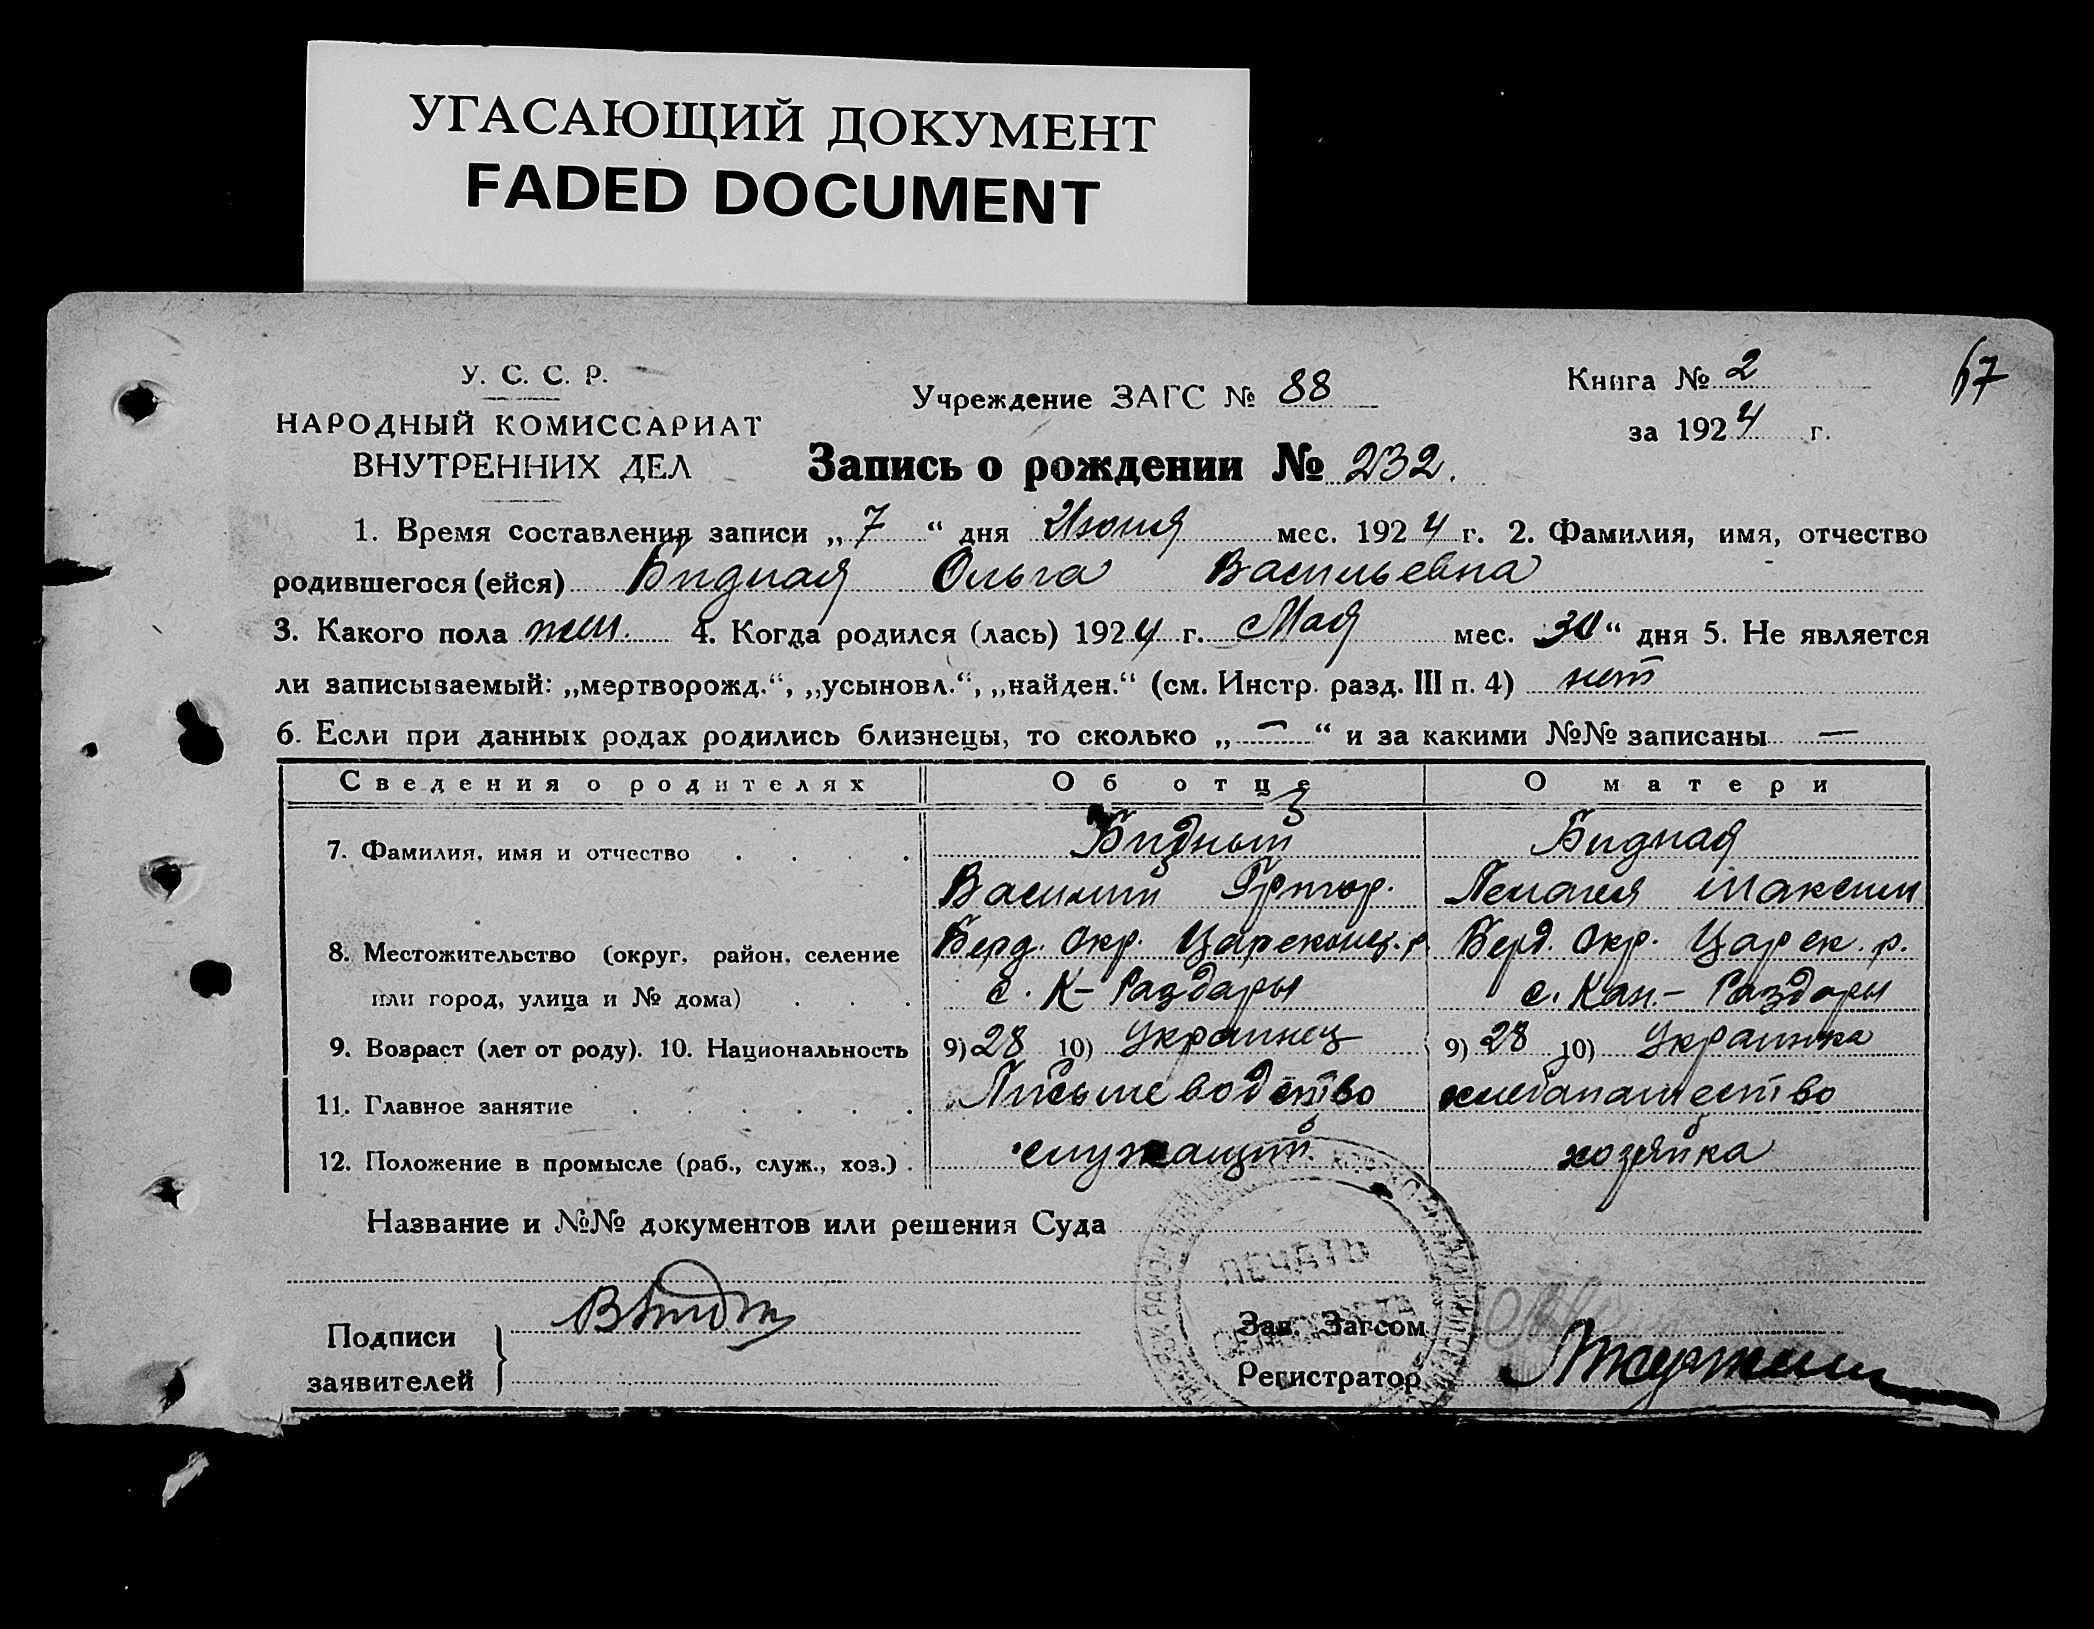 УГАСАЮЩИЙ ДОКУМЕНТ
FADED DOCUMENT
67
У. С. С. Р.
НАРОДНЫЙ КОМИССАРИАТ
ВНУТРЕННИХ ДЕЛ
Учреждение ЗАГС № 88
Книга № 2
за 1924 г.
Запись о рождении № 232.
1. Время составления записи „7“ дня Июня мес. 1924 г. 2. Фамилия, имя, отчество
родившегося (ейся) Бидная Ольга Васильевна
3. Какого пола жен. 4. Когда родился (лась) 1924 г. Мая мес. 30“ дня 5. Не является
ли записываемый: „мертворожд.“, „усыновл.“, „найден.“ (см. Инстр. разд. III п. 4) нет
6. Если при данных родах родились близнецы, то сколько „—“ и за какими №№ записаны —
Сведения о родителях Об отце О матери
7. Фамилия, имя и отчество . . . . Бидный Бидная
Василий Григор. Пелагея Максим
8. Местожительство (округ, район, селение Берд. окр. Цареконст. р. Берд. окр. Царек. р.
или город, улица и № дома) . . . с. К-Раздоры с. Кам.-Раздоры
9. Возраст (лет от роду). 10. Национальность 9) 28 10) Украинец 9) 28 10) Украинка
11. Главное занятие . . . . . . Письмеводство хлебопашество
12. Положение в промысле (раб., служ., хоз.) . служащий хозяйка
Название и №№ документов или решения Суда
ПЕЧАТЬ
Подписи
заявителей
Зав. Загсом
Регистратор